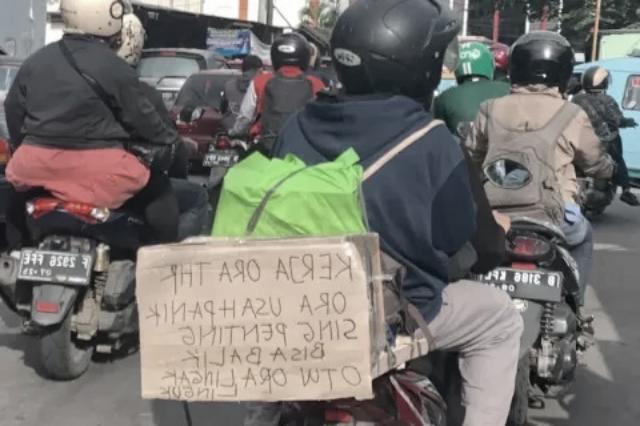 KERJA ORA THR
ORA USAH PANIK
SING PENTING
BISA BALIK
OTW ORA LINGAK
LINGUK
F 2926 FFE
07·25
B 3186